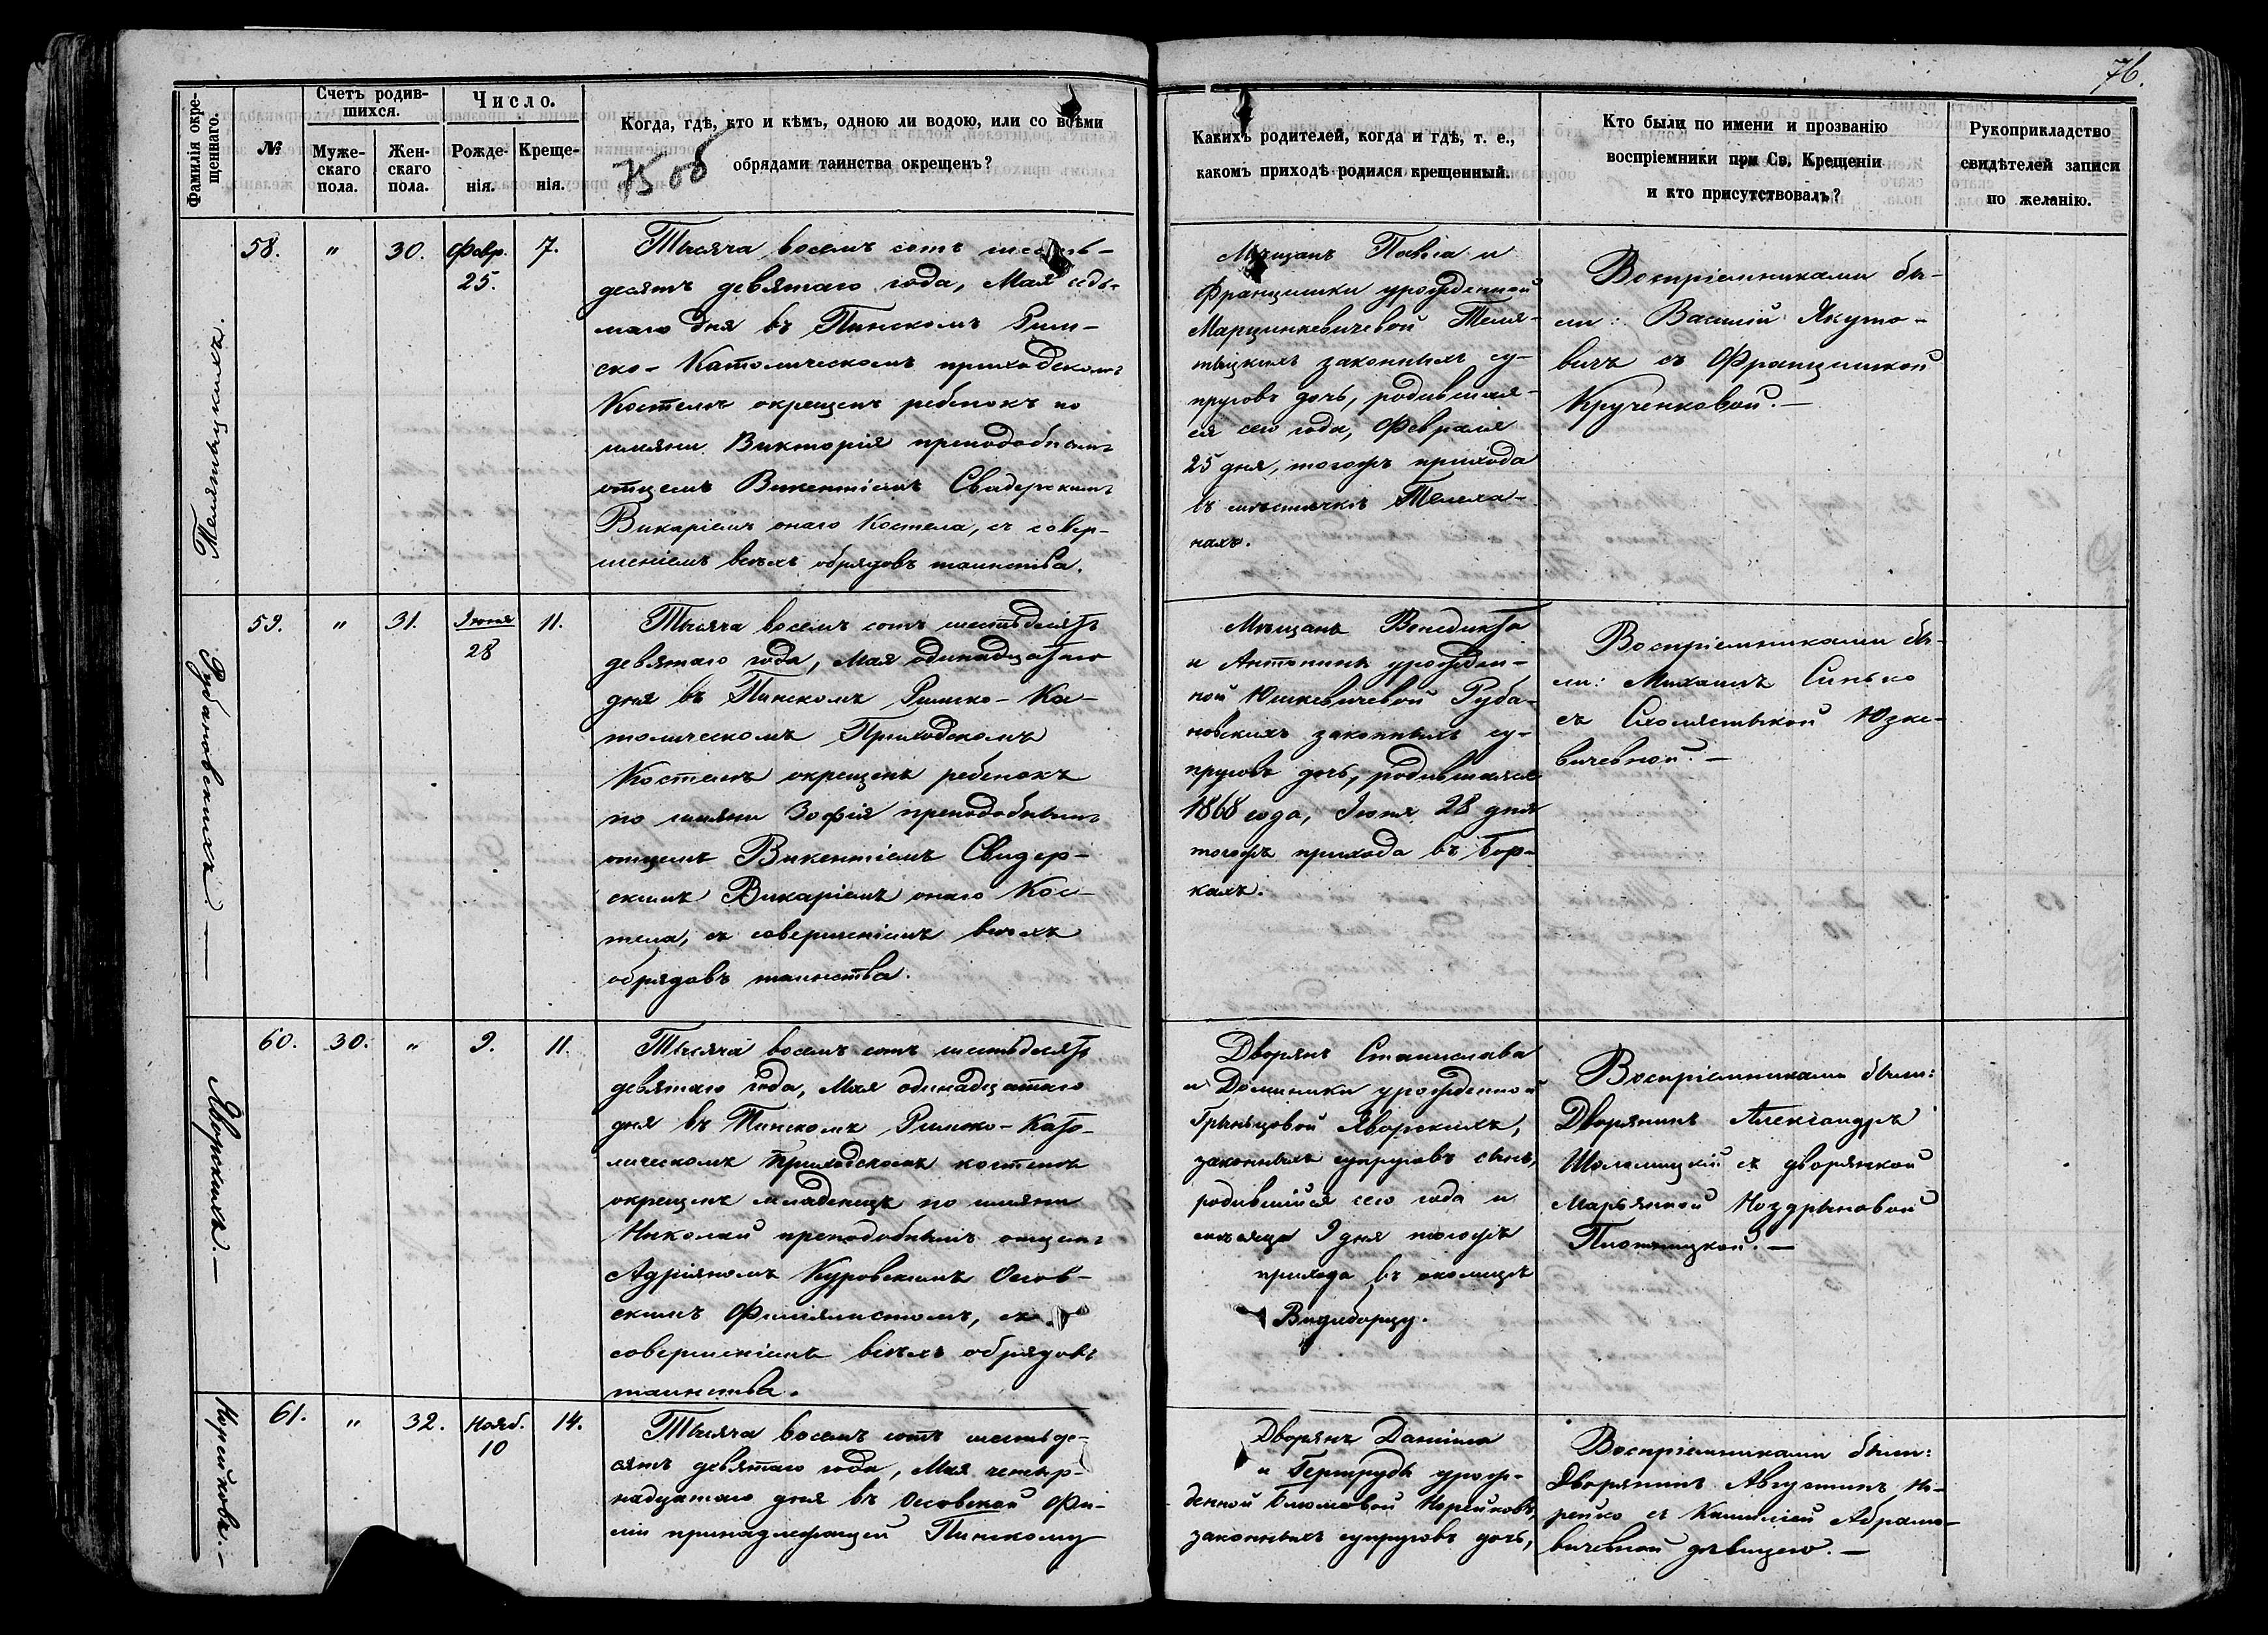 76.
Фамилія окре-
щеннаго.
№
Счетъ родив-
шихся.
Муже-
скаго
пола.
Жен-
скаго
пола.
Число.
Рожде-
нія.
Креще-
нія.
Когда, гдѣ, кто и кѣмъ, одною ли водою, или со всѣми
обрядами таинства окрещенъ?
Какихъ родителей, когда и гдѣ, т. е.,
какомъ приходѣ родился крещенный.
Кто были по имени и прозванію
воспріемники при Св. Крещеніи
и кто присутствовалъ?
Рукоприкладство
свидѣтелей записи
по желанію.
Телятыцкихъ.
58.
"
30.
Февр.
25.
7.
Тысяча восемь сотъ шесть-
десятъ девятаго года, Мая седь-
маго дня въ Пинскомъ Рим-
ско-Католическомъ приходскомъ
Костелѣ окрещенъ ребенокъ по
имяни Викторія преподобнымъ
отцемъ Викентіемъ Свидерскимъ
Викаріемъ онаго Костела, съ совер-
шеніемъ всѣхъ обрядовъ таинства.
Мѣщанъ Павла и
Францишки урожденной
Марцинкевичевой Теля-
тыцкихъ законныхъ су-
пруговъ дочь, родившая-
ся сего года, Февраля
25 дня, тогожъ прихода
въ мѣстечкѣ Телеха-
нахъ.
Воспріемниками бы-
ли: Василій Якуто-
вичъ съ Францишкой
Крученковой.—
Рубановскихъ.—
59.
"
31.
Іюня
28
11.
Тысяча восемь сотъ шестьдесятъ
девятаго года, Мая одинадцатаго
дня въ Пинскомъ Римско-Ка-
толическомъ Приходскомъ
Костелѣ окрещенъ ребенокъ
по имяни Зофія преподобнымъ
отцемъ Викентіемъ Свидер-
скимъ Викаріемъ онаго Кос-
тела, съ совершеніемъ всѣхъ
обрядовъ таинства.
Мѣщанъ Венедикта
и Антонины урожден-
ной Юшкевичевой Руба-
новскихъ законныхъ су-
пруговъ дочь, родившаяся
1868 года, Іюня 28 дня
тогожъ прихода въ Бор-
кахъ.
Воспріемниками бы-
ли: Михаилъ Синько
съ Юзке-
вичевной.—
Яворскихъ.—
60.
30.
"
9.
11.
Тысяча восемь сотъ шестьдесятъ
девятаго года, Мая одинадцатаго
дня въ Пинскомъ Римско-Като-
лическомъ Приходскомъ костелѣ
окрещенъ младенецъ по имяни
Николай преподобнымъ отцемъ
Адріяномъ Куровскимъ Осов-
скимъ Филіялистомъ, съ
совершеніемъ всѣхъ обрядовъ
таинства.
Дворянъ Станислава
и Доминики урожденной
Грынцовой Яворскихъ,
законныхъ супруговъ сынъ,
родившійся сего года и
мѣсяца 9 дня тогожъ
прихода въ околицѣ
Воспріемниками были:
Дворянинъ Александръ
съ дворянкой
Марьянной Ноздрыновой
Плотницкой.—
Нарейковъ.—
61.
"
32.
Нояб.
10
14.
Тысяча восемь сотъ шестьде-
сятъ девятаго года, Мая четыр-
надцатаго дня въ Осовской Фи-
ліи принадлежащей Пинскому
Дворянъ Даніила
и Гертруды урож-
денной Нарейковъ,
законныхъ супруговъ дочь,
Воспріемниками были:
Дворянинъ Августинъ На-
рейко съ Камиліей Абрамо-
вичевной дѣвицею.—